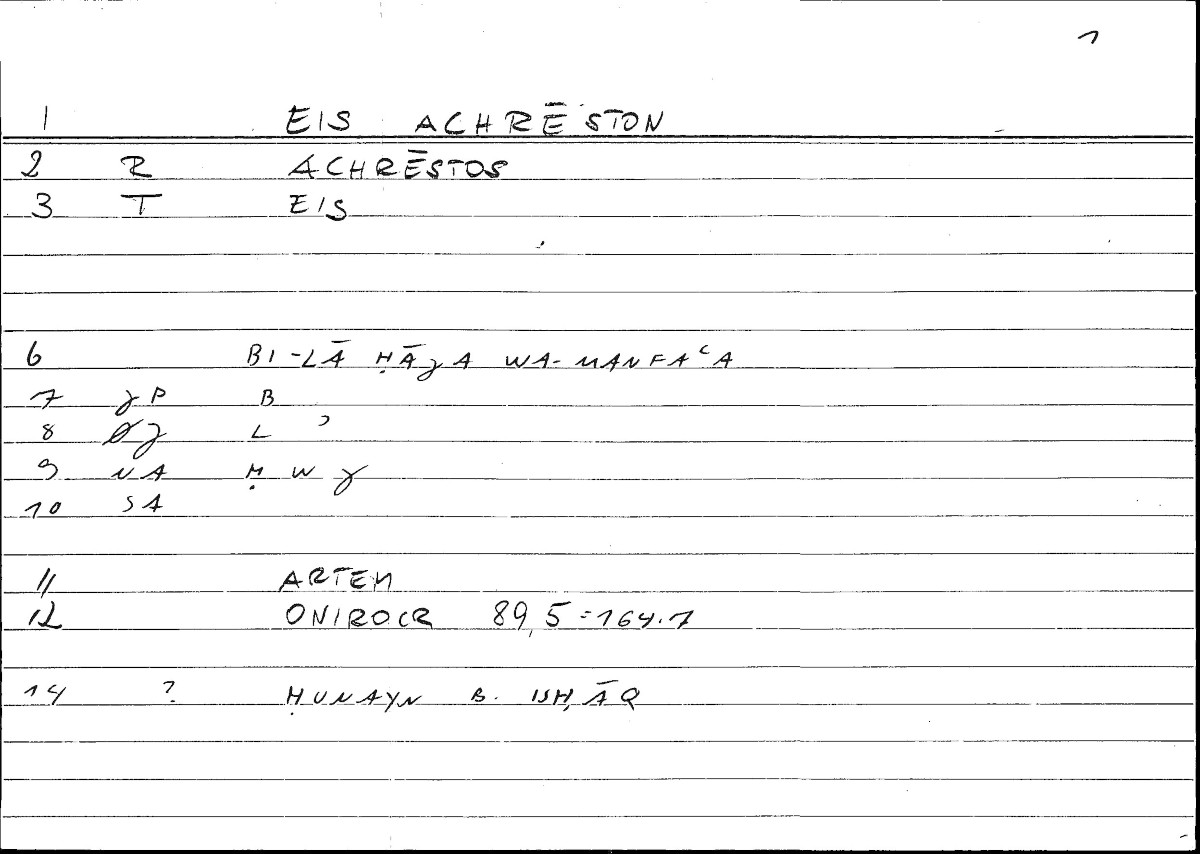 1
1 EIS ACHRĒSTON
2 R ACHRĒSTOS
3 T EIS
6 BI-LĀ ḤĀǧA WA-MANFAʿA
7 ǧP B
8 ǧ L ʾ
9 NA Ḥ W ǧ
10 SA
11 ARTEM
12 ONIROCR 89,5=164.7
14 ? ḤUNAYN B. ISḤĀQ